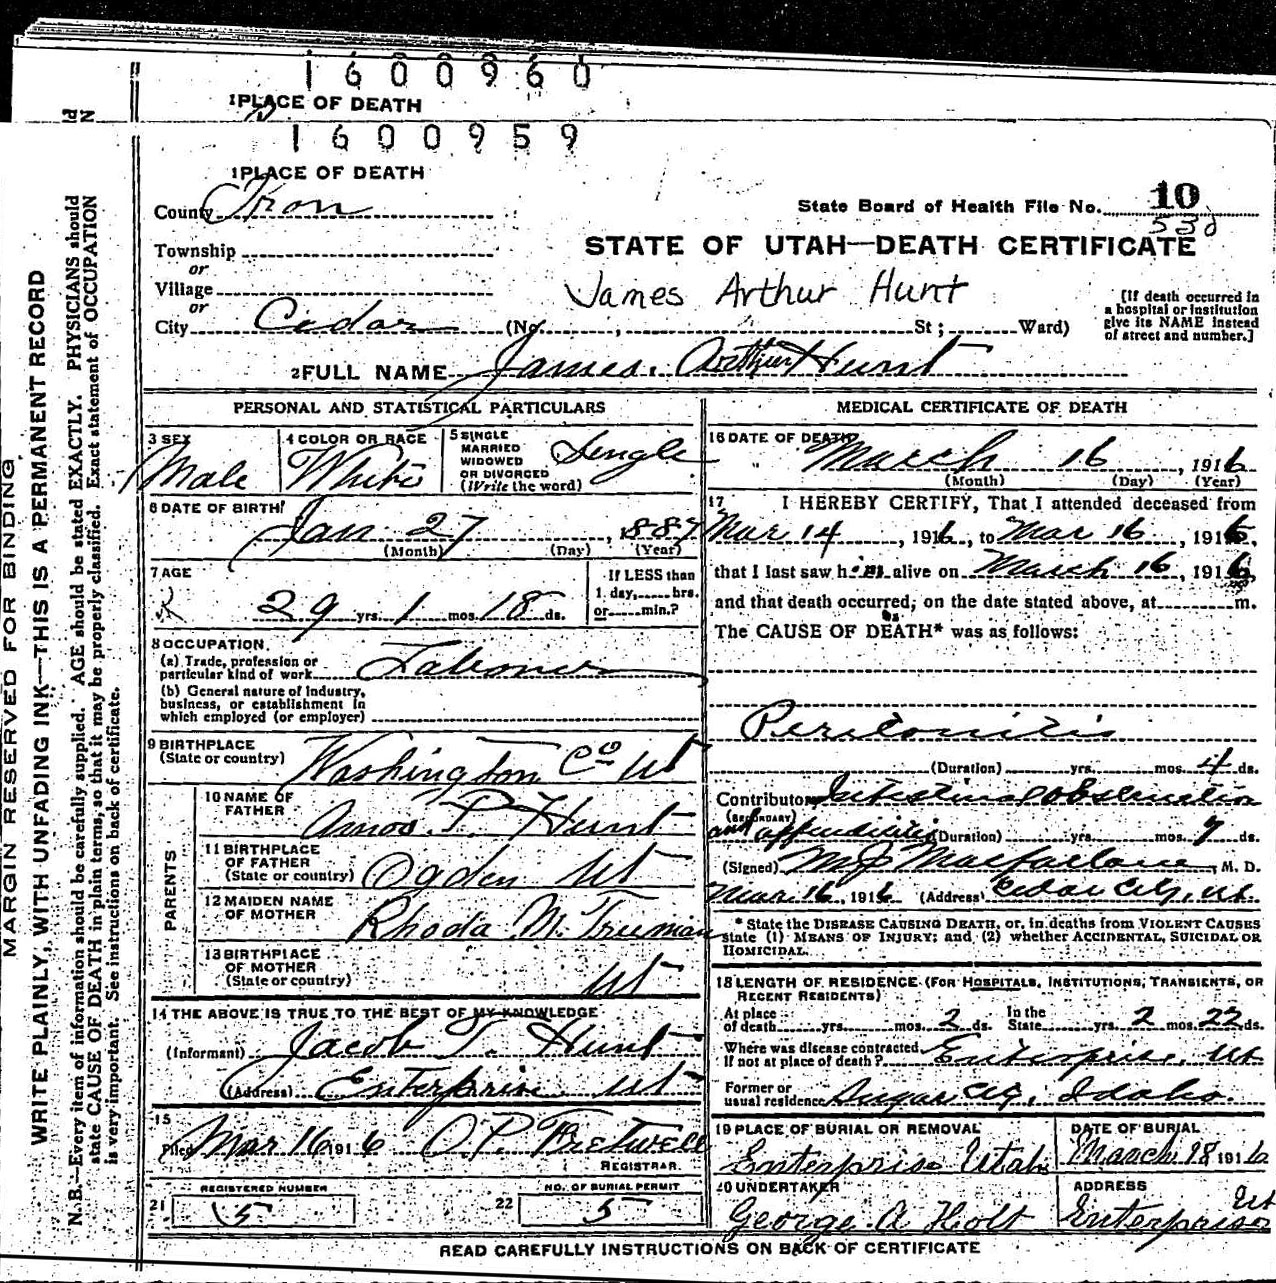 1600960
1 PLACE OF DEATH
1600959
1 PLACE OF DEATH
County Iron
State Board of Health File No. 10
530
Township
or
Village
or
City Cedar (No. , St ; Ward)
STATE OF UTAH—DEATH CERTIFICATE
James Arthur Hunt
[If death occurred in
a hospital or institution
give its NAME instead
of street and number.]
2 FULL NAME James Arthur Hunt
MARGIN RESERVED FOR BINDING
WRITE PLAINLY, WITH UNFADING INK—THIS IS A PERMANENT RECORD
N. B.—Every item of information should be carefully supplied. AGE should be stated EXACTLY. PHYSICIANS should
state CAUSE OF DEATH in plain terms, so that it may be properly classified. Exact statement of OCCUPATION
is very important. See instructions on back of certificate.
PERSONAL AND STATISTICAL PARTICULARS
3 SEX
Male
4 COLOR OR RACE
White
5 SINGLE
MARRIED
WIDOWED
OR DIVORCED
(Write the word)
Single
6 DATE OF BIRTH
Jan 27, 1887
(Month) (Day) (Year)
7 AGE
29 yrs. 1 mos. 18 ds.
If LESS than
1 day, hrs.
or min.?
8 OCCUPATION
(a) Trade, profession or
particular kind of work Laborer
(b) General nature of industry,
business, or establishment in
which employed (or employer)
9 BIRTHPLACE
(State or country) Washington Co Ut
PARENTS
10 NAME OF
FATHER Amos P. Hunt
11 BIRTHPLACE
OF FATHER
(State or country) Ogden Ut
12 MAIDEN NAME
OF MOTHER Rhoda M. Truman
13 BIRTHPLACE
OF MOTHER
(State or country) Ut
14 THE ABOVE IS TRUE TO THE BEST OF MY KNOWLEDGE
(Informant) Jacob T. Hunt
(Address) Enterprise Ut
15
Filed Mar 16 1916 O.P. Fretwell
REGISTRAR.
21 REGISTERED NUMBER
5
22 NO. OF BURIAL PERMIT
5
MEDICAL CERTIFICATE OF DEATH
16 DATE OF DEATH
March 16, 1916
(Month) (Day) (Year)
17 I HEREBY CERTIFY, That I attended deceased from
Mar 14, 1916, to Mar 16, 1916,
that I last saw him alive on March 16, 1916
and that death occurred, on the date stated above, at m.
The CAUSE OF DEATH* was as follows:
Peritonitis
(Duration) yrs. mos. 4 ds.
Contributory Intestinal obstruction
(SECONDARY)
and appendicitis (Duration) yrs. mos. 7 ds.
(Signed) M J Macfarlane, M. D.
Mar 16, 1916 (Address) Cedar City, Ut.
* State the DISEASE CAUSING DEATH, or, in deaths from VIOLENT CAUSES
state (1) MEANS OF INJURY; and (2) whether ACCIDENTAL, SUICIDAL OR
HOMICIDAL.
18 LENGTH OF RESIDENCE (FOR HOSPITALS, INSTITUTIONS, TRANSIENTS, OR
RECENT RESIDENTS)
At place
of death yrs. mos. 2 ds. In the
State yrs. 2 mos. 22 ds.
Where was disease contracted,
if not at place of death? Enterprise, Ut
Former or
usual residence Sugar City, Idaho.
19 PLACE OF BURIAL OR REMOVAL
Enterprise Utah
DATE OF BURIAL
March 18 1916
20 UNDERTAKER
George A Holt
ADDRESS
Enterprise Ut
READ CAREFULLY INSTRUCTIONS ON BACK OF CERTIFICATE